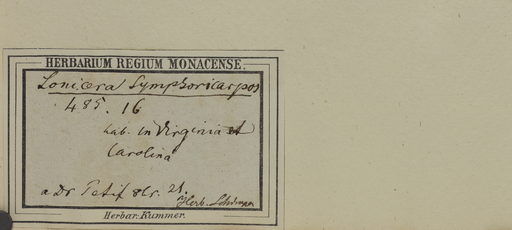 HERBARIUM REGIUM MONACENSE.
Lonicera Symphoricarpos
485. 16
hab. in Virginia et
Carolina
a Dr. Petif 8br. 21.
Herb.
Herbar. Kummer.